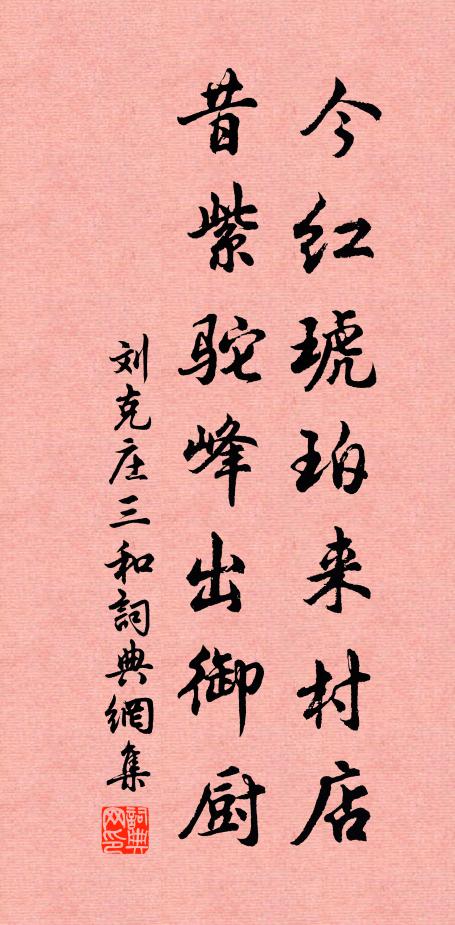 今红琥珀来村店
昔紫驼峰出御厨
刘克庄三和詞典網集
詞典网印